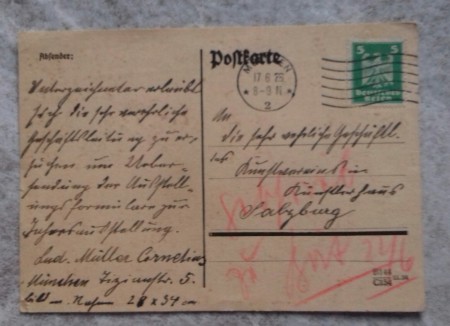 Absender:
Unterzeichneter erlaubt
sich die sehr verehrliche
Geschäftsleitung zu er-
suchen um Ueber-
sendung der Ausstell-
ungsformulare zur
Jahresausstellung.
Lud. Müller Cornelius
München Tizianstr. 5.
Bild m. Rahmen 27 x 34 cm
Postkarte
MÜNCHEN
17.6.25
8-9 N
2
5 5
Deutsches
Reich
An
die sehr verehrliche Geschäftl.
des Kunstvereins im
Künstlerhaus
Salzburg
fort 24/6